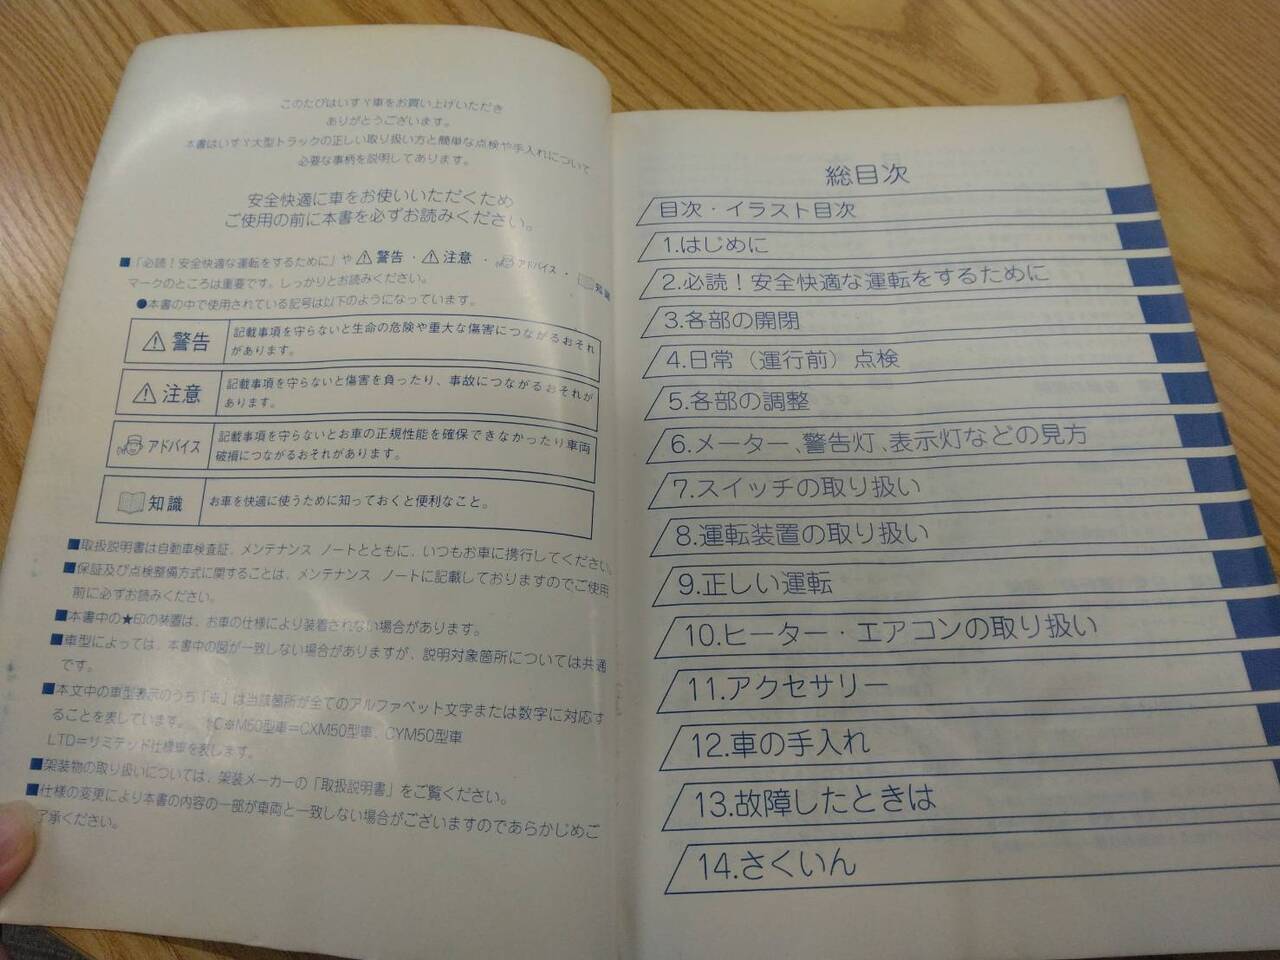 このたびはいすゞ車をお買い上げいただき
ありがとうございます。
本書はいすゞ大型トラックの正しい取り扱い方と簡単な点検や手入れについて
必要な事柄を説明してあります。
安全快適に車をお使いいただくため
ご使用の前に本書を必ずお読みください。
■「必読!安全快適な運転をするために」や⚠警告・⚠注意・アドバイス・知識
マークのところは重要です。しっかりとお読みください。
●本書の中で使用されている記号は以下のようになっています。
⚠警告
記載事項を守らないと生命の危険や重大な傷害につながるおそれ
があります。
⚠注意
記載事項を守らないと傷害を負ったり、事故につながるおそれが
あります。
アドバイス
記載事項を守らないとお車の正規性能を確保できなかったり車両
破損につながるおそれがあります。
知識
お車を快適に使うために知っておくと便利なこと。
■取扱説明書は自動車検査証、メンテナンス ノートとともに、いつもお車に携行してください。
■保証及び点検整備方式に関することは、メンテナンス ノートに記載しておりますのでご使用
前に必ずお読みください。
■本書中の★印の装置は、お車の仕様により装着されない場合があります。
■車型によっては、本書中の図が一致しない場合がありますが、説明対象箇所については共通
です。
■本文中の車型表示のうち「※」は当該箇所が全てのアルファベット文字または数字に対応す
ることを表しています。 C※M50型車=CXM50型車、CYM50型車
LTD=リミテッド仕様車を表します。
■架装物の取り扱いについては、架装メーカーの「取扱説明書」をご覧ください。
■仕様の変更により本書の内容の一部が車両と一致しない場合がございますのであらかじめご
了承ください。
総目次
目次・イラスト目次
1.はじめに
2.必読!安全快適な運転をするために
3.各部の開閉
4.日常(運行前)点検
5.各部の調整
6.メーター、警告灯、表示灯などの見方
7.スイッチの取り扱い
8.運転装置の取り扱い
9.正しい運転
10.ヒーター・エアコンの取り扱い
11.アクセサリー
12.車の手入れ
13.故障したときは
14.さくいん